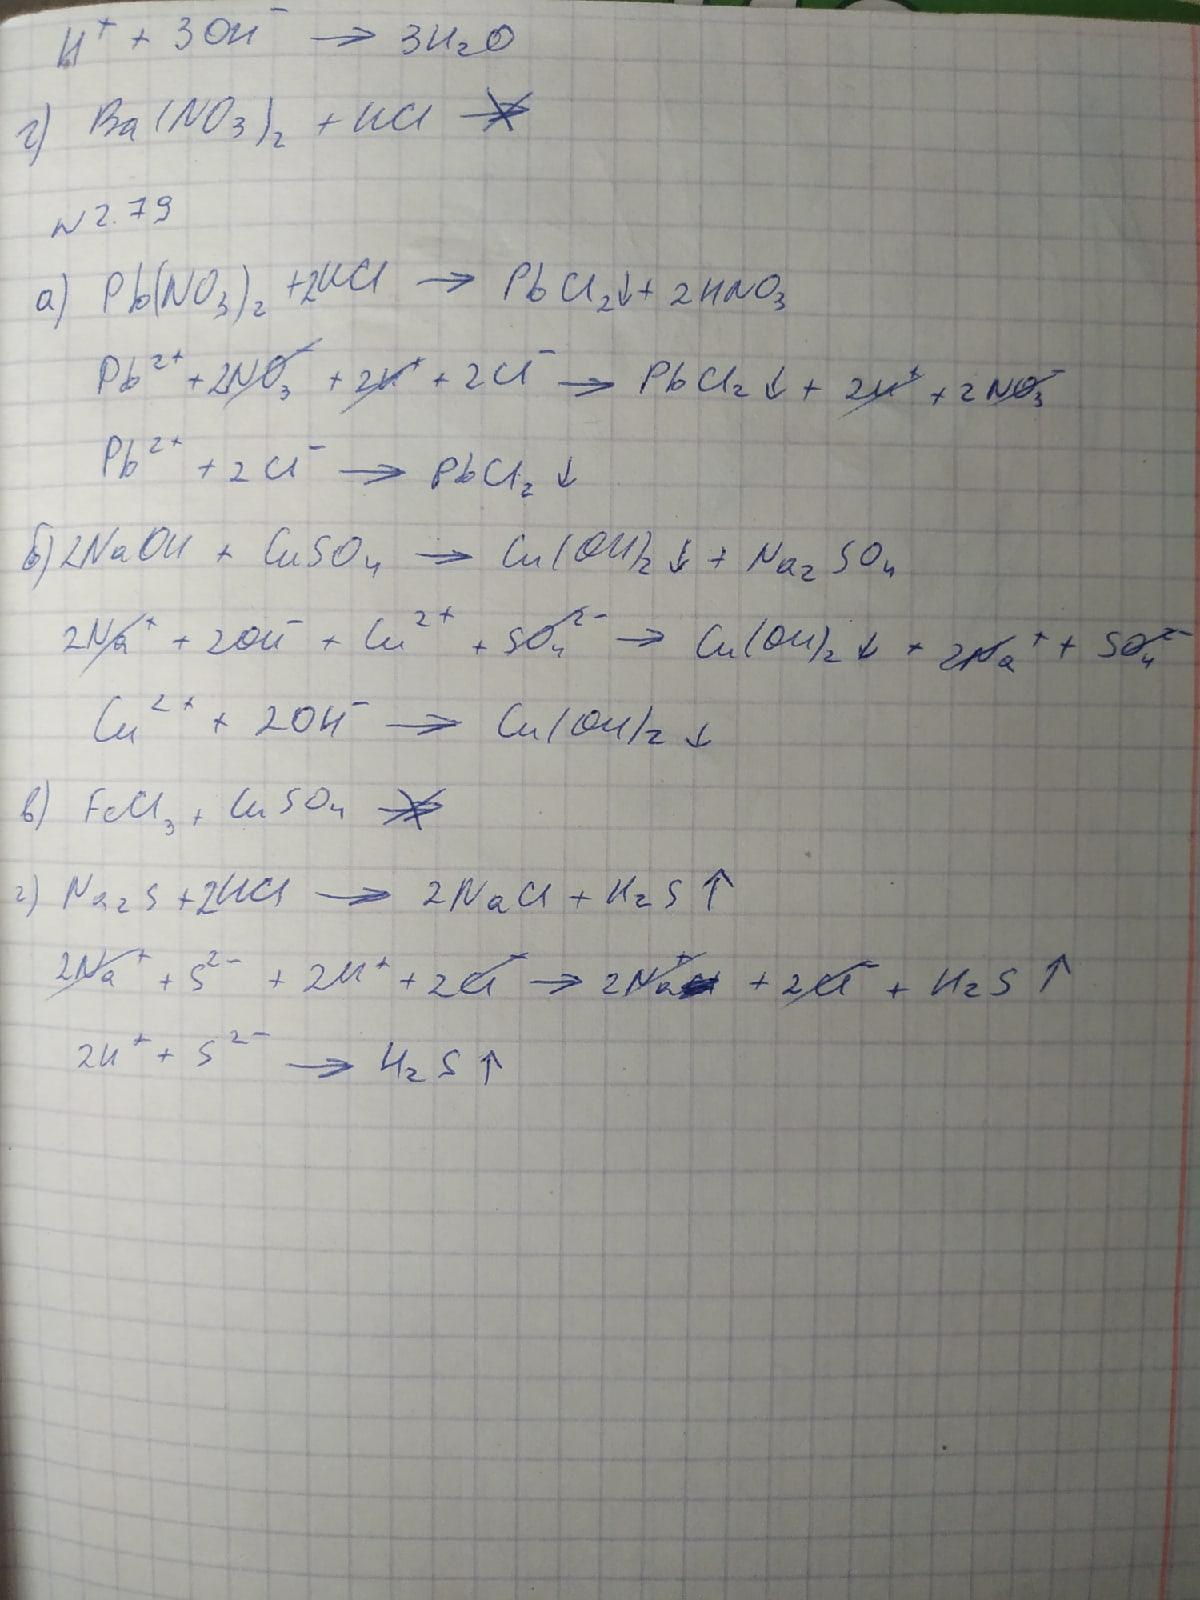 H⁺ + 3OH⁻ → 3H₂O
г) Ba(NO₃)₂ + HCl ↛
N 2.79
а) Pb(NO₃)₂ + 2HCl → PbCl₂↓ + 2HNO₃
Pb²⁺ + 2NO₃⁻ + 2H⁺ + 2Cl⁻ → PbCl₂↓ + 2H⁺ + 2NO₃⁻
Pb²⁺ + 2Cl⁻ → PbCl₂↓
б) 2NaOH + CuSO₄ → Cu(OH)₂↓ + Na₂SO₄
2Na⁺ + 2OH⁻ + Cu²⁺ + SO₄²⁻ → Cu(OH)₂↓ + 2Na⁺ + SO₄²⁻
Cu²⁺ + 2OH⁻ → Cu(OH)₂↓
в) FeCl₃ + CuSO₄ ↛
г) Na₂S + 2HCl → 2NaCl + H₂S↑
2Na⁺ + S²⁻ + 2H⁺ + 2Cl⁻ → 2Na⁺ + 2Cl⁻ + H₂S↑
2H⁺ + S²⁻ → H₂S↑